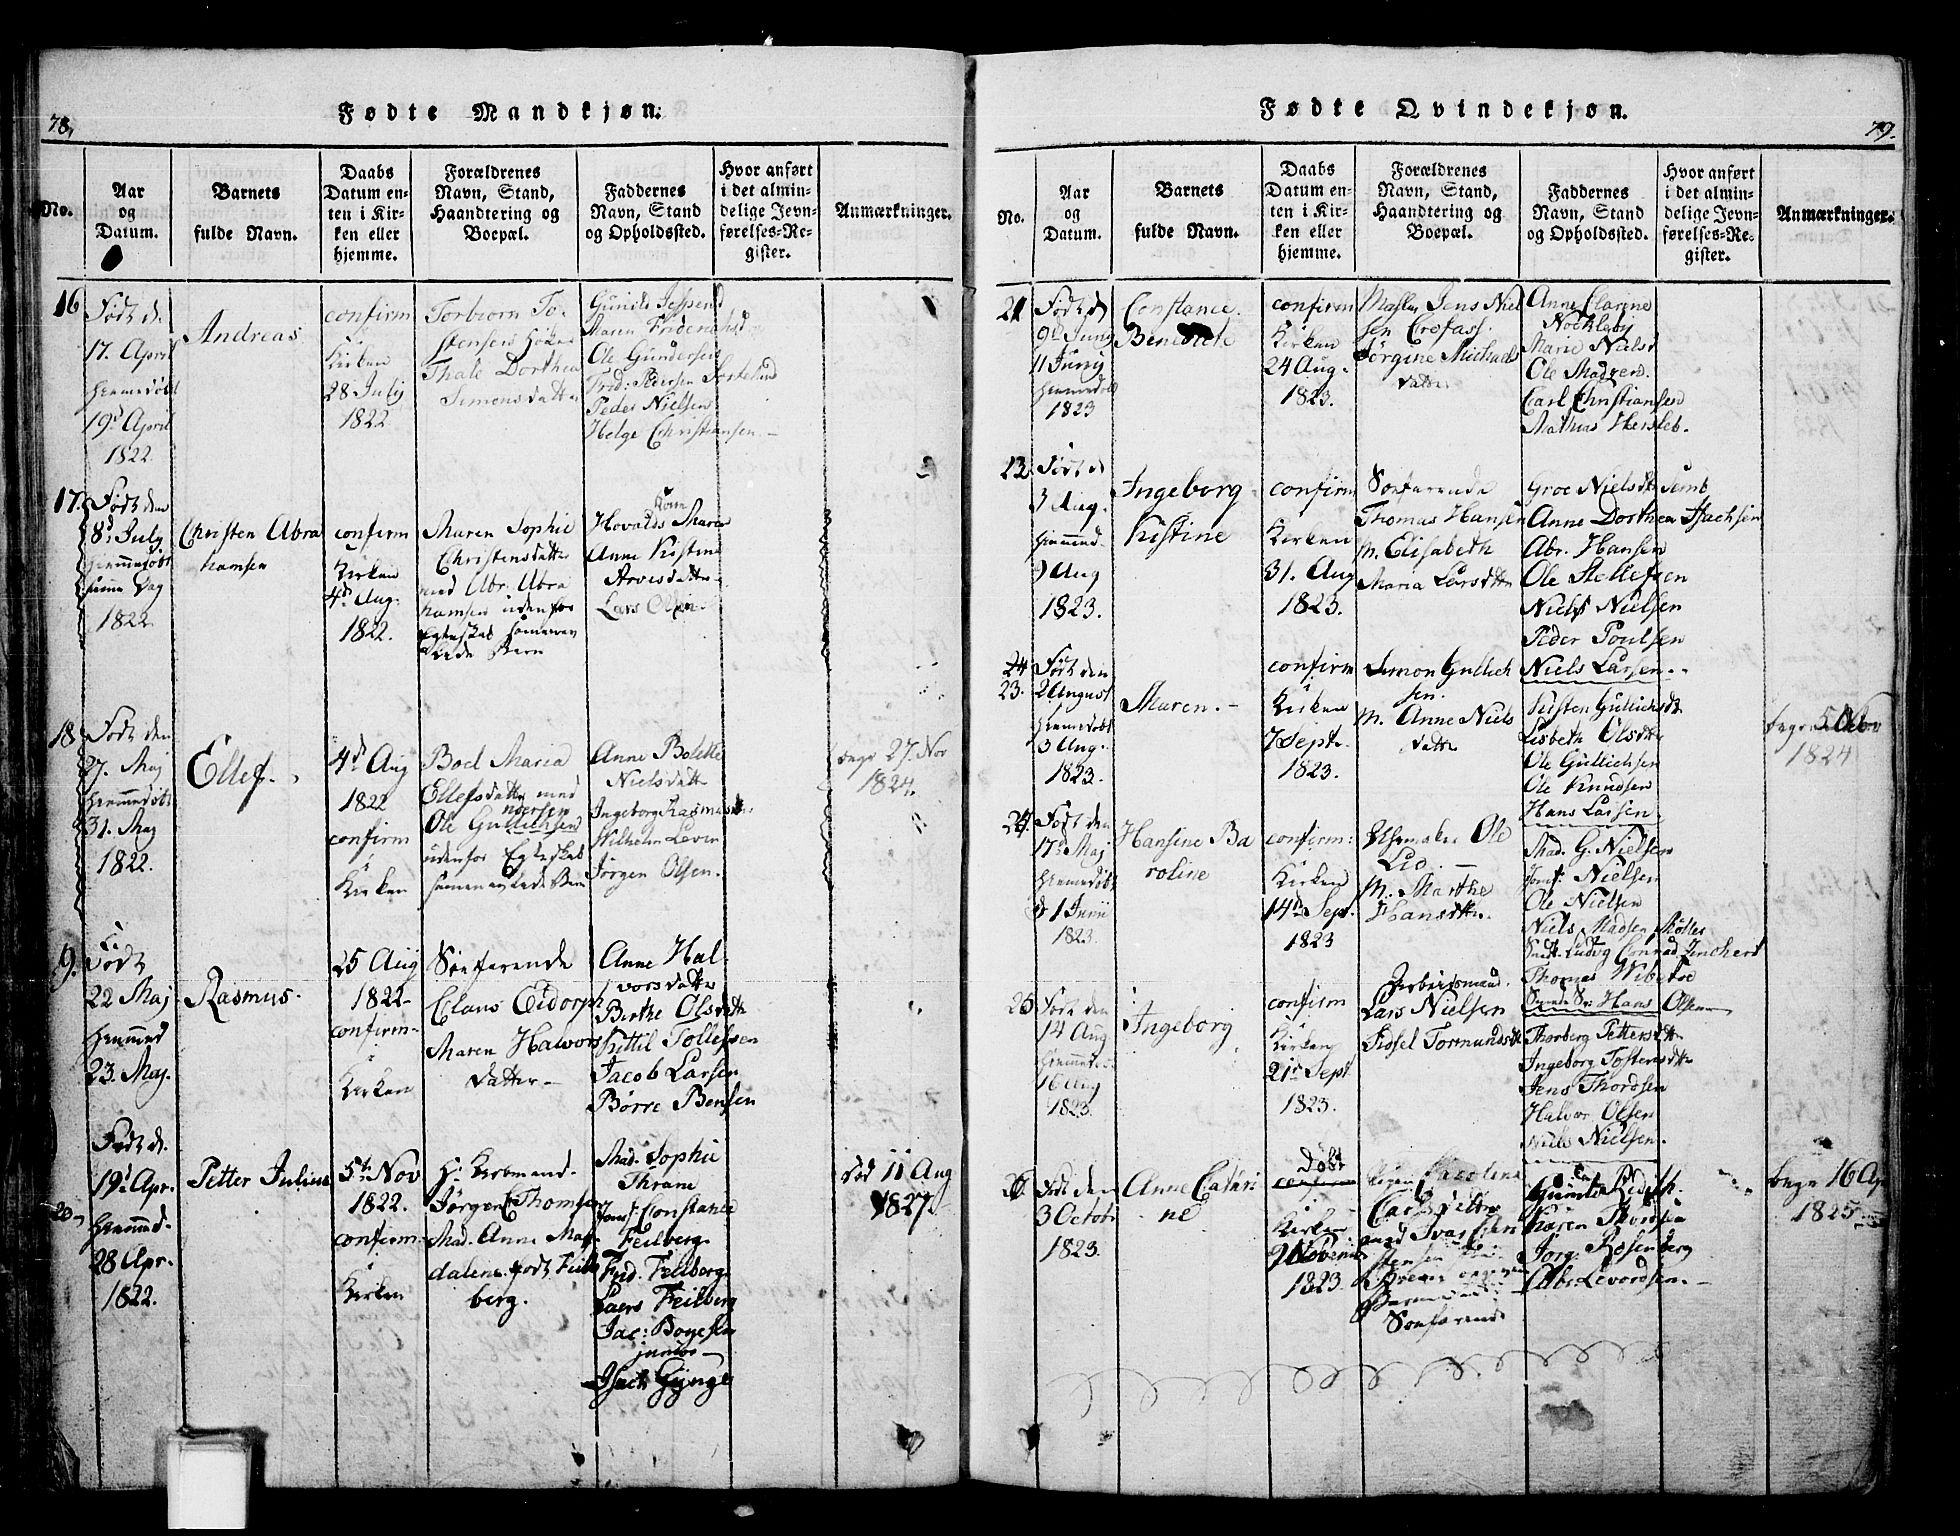 78.
Fødte Mandkjøn.
No.
Aar
og
Datum.
Barnets
fulde Navn.
Daabs
Datum en-
ten i Kir-
ken eller
hjemme.
Forældrenes
Navn, Stand,
Haandtering og
Boepæl.
Faddernes
Navn, Stand
og Opholdssted.
Hvor anført
i det almin-
delige Jevn-
førelses-Re-
gister.
Anmærkninger.
16
Født d.
17. April
hjemmedøbt
19d April
1822.
Andreas
confirm
i
Kirken
28 July
1822
Torbiørn To-
stensen
Thale Dorthea
Simonsdatter
Gunild Jespersd
Maren
Ole Gundersen
Frid: Pedersen
Peder Nielsen
Helge Christiansen.
17.
Født den
8d July
hjemmedøbt
samme Dag
1822.
Christen Abra
hamsen
confirm
i
Kirken
4de Aug.
1822.
Maren Sophie
Christensdatter
med Abr. Abra
hamsen udenfor
Egteskab sammenav
lede Barn
Kone
Hovalds Maren
Anne Kistine
Arvesdatter
Lars Olsen.
18
Født den
27. Maj
hjemmedøbt
31. Maj
1822.
Ellef.
4de Aug
1822
confirm
i
Kirken
Boel Maria
Ellefsdatter med
Ole Gullichsen
udenfor Egteskab
sammenavlede Barn
Anne Bolette
Nielsdatter
Ingeborg Rasmusdtr
Wilhelm Leven
Jørgen Olsen.
begr 27. Nov
1824.
9.
Født
22 Maj
hjemmed
23. Maj.
Rasmus.
25 Aug
1822
confirm
i
Kirken
Søefarende
Claus Eidorph
Maren Halvors
datter
Anne Hal-
vorsdatter
Birthe Olsdattr
Kittil Tollefsen
Jacob Larsen
Børre Bensen
20
Født d.
19d Apr.
hjemmed.
28 Apr.
1822.
Petter Julius
5te Nov
1822.
confirm:
i
Kirken
Hr. Kiøbmand
Jørgen Thomsen
Mad. Anne Mag-
dalene født Feil
berg.
Mad. Sophie
Thrane
Jomf: Constance
Feilberg.
Frid. Feilberg
Laers Feilberg
Jac: Boyesen
junior
Isach Gjynge
död 11 Aug
1827
79.
Fødte Qvindekjøn.
No.
Aar
og
Datum.
Barnets
fulde Navn.
Daabs
Datum en-
ten i Kir-
ken eller
hjemme.
Forældrenes
Navn, Stand,
Haandtering og
Boepæl.
Faddernes
Navn, Stand
og Opholdssted.
Hvor anført
i det almin-
delige Jevn-
førelses-Re-
gister.
Anmærkninger.
21
Født d
9de Junij
11 Junij
hjemmedøbt
1823
Constance
Benedicte
confirm
Kirken
24 Aug.
1823.
Jens Niel
sen
Jørgine Michaels
datter
Anne Clarine
Marie Nielsd
Ole Madsen.
Carl Christiansen
Mathias Hersleb.
Født d
3 Aug.
hjemmed.
9 Aug
1823.
Ingeborg
Kistine
confirm
i
Kirken
31. Aug
1823.
Søefarende
Thomas Hansen
m. Elisabeth
Maria Larsdtr
Groe Nielsdtr Semb
Anne Dorthea Isachsen
Abr. Hansen
Ole Stellefsen
Niels Nielsen
Peder Poulsen
Niels Larsen.
23.
Født den
2 August
hjemmedøbt
3 Aug.
1823.
Maren.
confirm
i
Kirken
7 Sept.
1823.
Simon Gullich
sen.
M. Anne Niels
datter
Kisten Gullichsdtr
Lisbeth Olsdtr
Ole Gullichsen
Ole Knudsen
Hans Larsen.
begr.
1824
24.
Født den
17de Maj
hjemmedøbt
d 1 Junii
1823.
Hansine Ba
roline
confirm:
i
Kirken
14de Sept.
1823
Ole
Lid
M. Marthe
Hansdtr.
Mad. G. Nielsen
Jomf: Nielsen
Ole Nielsen
Niels Madsen Møller
Ludvig Conrad
Thomas Wibetoe
Hans Olsen
25
Født den
14 Aug
hjemmed.
16 Aug
1823.
Ingeborg
confirm
i
Kirken
21de Sept
1823.
Arbeidsmand.
Lars Nielsen
Sidsel Tormundsdtr
Thorberg Pettersdtr
Ingeborg Tostensdtr
Jens Thordsen
Halvor Olsen
Niels Nielsen.
26.
Født den
3 Octobr
1823.
Anne Cathri
ne
Døbt
confirm
i
Kirken
9 Novemb
1823.
Pigen Carolina
Carlsdatter
med Ivar
Jensen
Søefarende
Karen Thordsen
Jørg. Rosenberg
Abr. Levordsen.
begr 16 Ap
1825